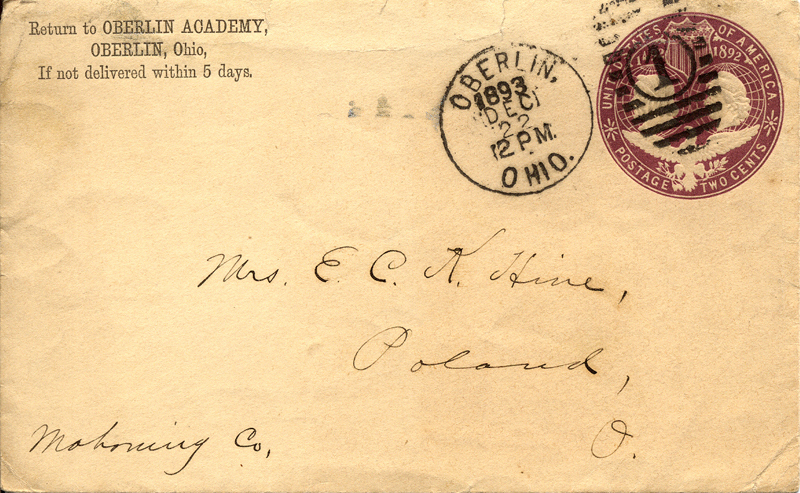 Return to OBERLIN ACADEMY,
OBERLIN, Ohio,
If not delivered within 5 days.
OBERLIN,
1893
DEC
22
12 PM.
OHIO.
1
UNITED STATES OF AMERICA
1892
POSTAGE TWO CENTS
Mrs. E. C. K. Hine,
Poland,
Mahoning Co,
O.